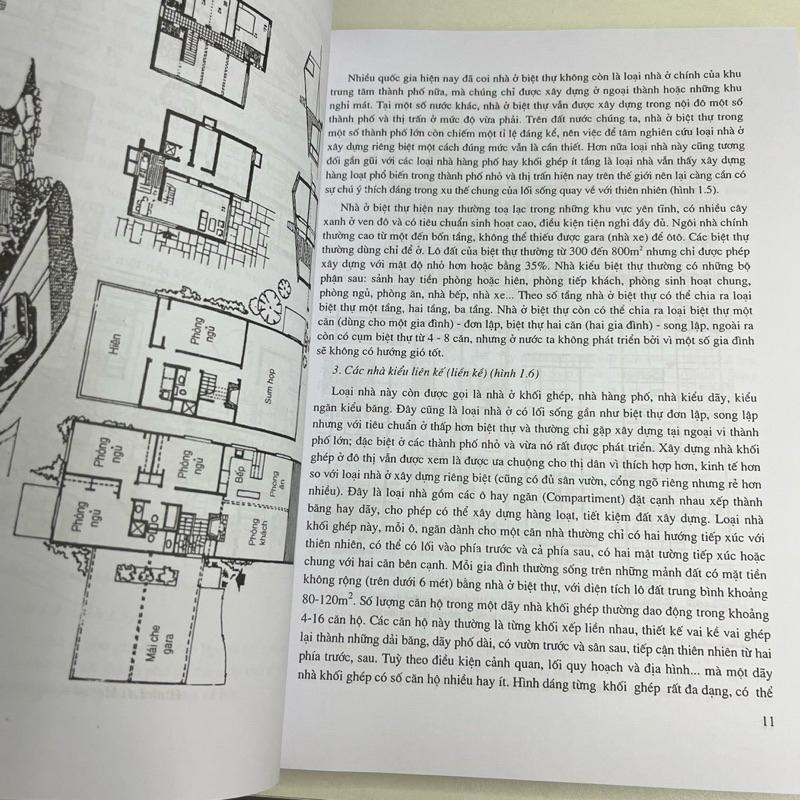 Hiên
Phòng ngủ
Sum họp
Phòng ngủ
Phòng ngủ
Phòng ngủ
Bếp
Phòng ăn
Phòng khách
Mái che gara
Nhiều quốc gia hiện nay đã coi nhà ở biệt thự không còn là loại nhà ở chính của khu
trung tâm thành phố nữa, mà chúng chỉ được xây dựng ở ngoại thành hoặc những khu
nghỉ mát. Tại một số nước khác, nhà ở biệt thự vẫn được xây dựng trong nội đô một số
thành phố và thị trấn ở mức độ vừa phải. Trên đất nước chúng ta, nhà ở biệt thự trong
một số thành phố lớn còn chiếm một tỉ lệ đáng kể, nên việc để tâm nghiên cứu loại nhà ở
xây dựng riêng biệt một cách đúng mức vẫn là cần thiết. Hơn nữa loại nhà này cũng tương
đối gần gũi với các loại nhà hàng phố hay khối ghép ít tầng là loại nhà vẫn thấy xây dựng
hàng loạt phổ biến trong thành phố nhỏ và thị trấn hiện nay trên thế giới nên lại càng cần có
sự chú ý thích đáng trong xu thế chung của lối sống quay về với thiên nhiên (hình 1.5).
Nhà ở biệt thự hiện nay thường toạ lạc trong những khu vực yên tĩnh, có nhiều cây
xanh ở ven đô và có tiêu chuẩn sinh hoạt cao, điều kiện tiện nghi đầy đủ. Ngôi nhà chính
thường cao từ một đến bốn tầng, không thể thiếu được gara (nhà xe) để ôtô. Các biệt thự
thường dùng chỉ để ở. Lô đất của biệt thự thường từ 300 đến 800m² nhưng chỉ được phép
xây dựng với mật độ nhỏ hơn hoặc bằng 35%. Nhà kiểu biệt thự thường có những bộ
phận sau: sảnh hay tiền phòng hoặc hiên, phòng tiếp khách, phòng sinh hoạt chung,
phòng ngủ, phòng ăn, nhà bếp, nhà xe... Theo số tầng nhà ở biệt thự có thể chia ra loại
biệt thự một tầng, hai tầng, ba tầng. Nhà ở biệt thự còn có thể chia ra loại biệt thự một
căn (dùng cho một gia đình) - đơn lập, biệt thự hai căn (hai gia đình) - song lập, ngoài ra
còn có cụm biệt thự từ 4 - 8 căn, nhưng ở nước ta không phát triển bởi vì một số gia đình
sẽ không có hướng gió tốt.
3. Các nhà kiểu liên kế (liền kề) (hình 1.6)
Loại nhà này còn được gọi là nhà ở khối ghép, nhà hàng phố, nhà kiểu dãy, kiểu
ngăn kiểu băng. Đây cũng là loại nhà ở có lối sống gần như biệt thự đơn lập, song lập
nhưng với tiêu chuẩn ở thấp hơn biệt thự và thường chỉ gặp xây dựng tại ngoại vi thành
phố lớn; đặc biệt ở các thành phố nhỏ và vừa nó rất được phát triển. Xây dựng nhà khối
ghép ở đô thị vẫn được xem là được ưa chuộng cho thị dân vì thích hợp hơn, kinh tế hơn
so với loại nhà ở xây dựng riêng biệt (cũng có đủ sân vườn, cổng ngõ riêng nhưng rẻ hơn
nhiều). Đây là loại nhà gồm các ô hay ngăn (Compartiment) đặt cạnh nhau xếp thành
băng hay dãy, cho phép có thể xây dựng hàng loạt, tiết kiệm đất xây dựng. Loại nhà
khối ghép này, mỗi ô, ngăn dành cho một căn nhà thường chỉ có hai hướng tiếp xúc với
thiên nhiên, có thể có lối vào phía trước và cả phía sau, có hai mặt tường tiếp xúc hoặc
chung với hai căn bên cạnh. Mỗi gia đình thường sống trên những mảnh đất có mặt tiền
không rộng (trên dưới 6 mét) bằng nhà ở biệt thự, với diện tích lô đất trung bình khoảng
80-120m². Số lượng căn hộ trong một dãy nhà khối ghép thường dao động trong khoảng
4-16 căn hộ. Các căn hộ này thường là từng khối xếp liền nhau, thiết kế vai kề vai ghép
lại thành những dải băng, dãy phố dài, có vườn trước và sân sau, tiếp cận thiên nhiên từ hai
phía trước, sau. Tuỳ theo điều kiện cảnh quan, lối quy hoạch và địa hình... mà một dãy
nhà khối ghép có số căn hộ nhiều hay ít. Hình dáng từng khối ghép rất đa dạng, có thể
11